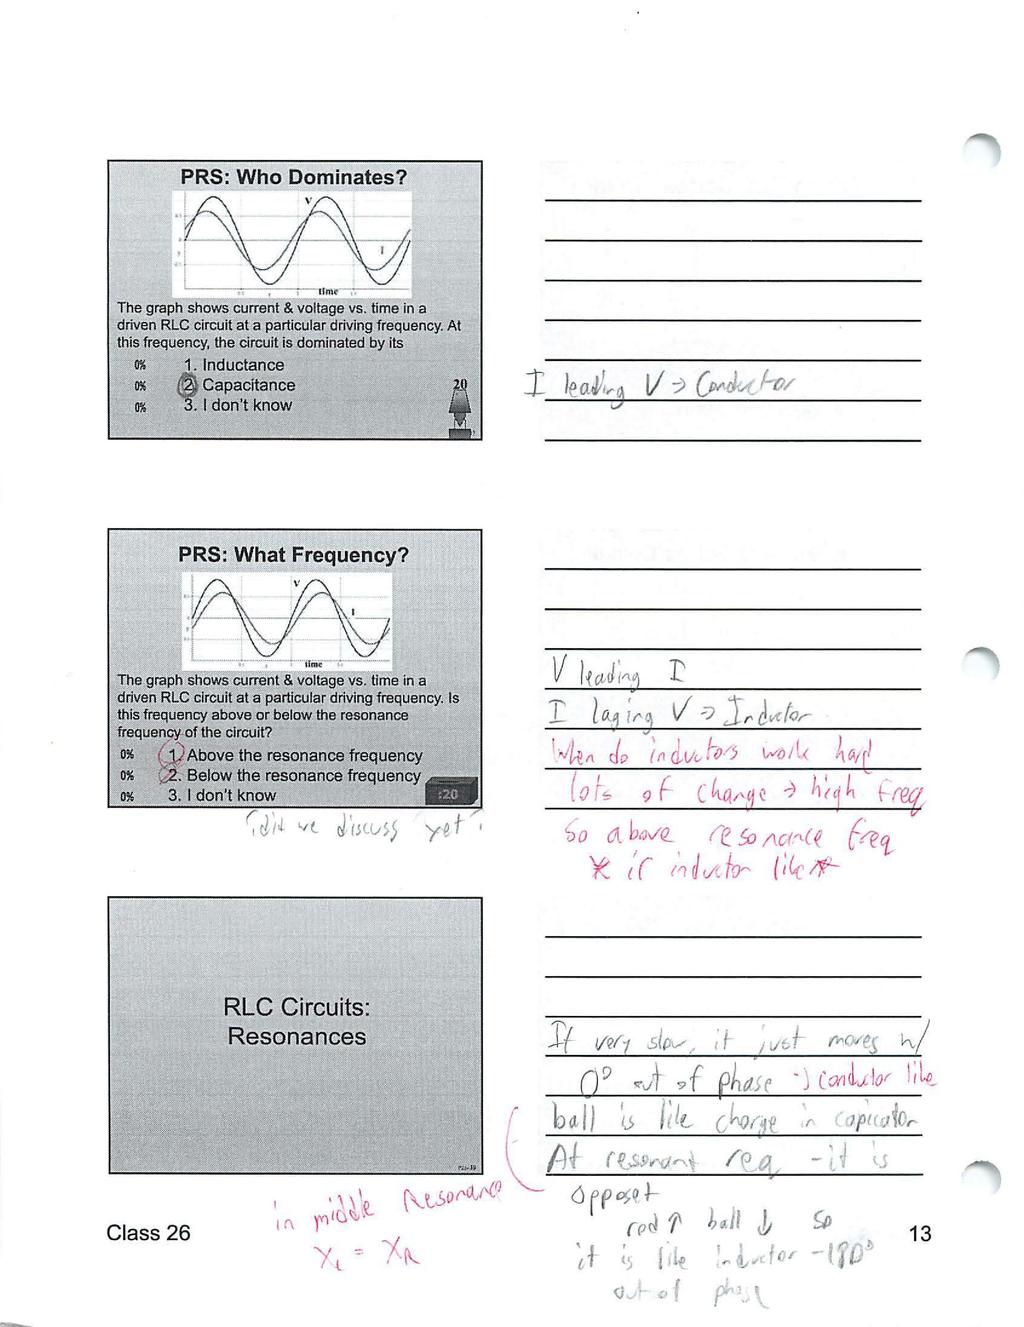 PRS: Who Dominates?
V
I
time
The graph shows current & voltage vs. time in a
driven RLC circuit at a particular driving frequency. At
this frequency, the circuit is dominated by its
0% 1. Inductance
0% 2. Capacitance
0% 3. I don't know
20
I leading V => Conductor
PRS: What Frequency?
V
I
time
The graph shows current & voltage vs. time in a
driven RLC circuit at a particular driving frequency. Is
this frequency above or below the resonance
frequency of the circuit?
0% 1. Above the resonance frequency
0% 2. Below the resonance frequency
0% 3. I don't know
:20
did we discuss yet?
V leading I
I laging V => Inductor
When do inductors work hard
lots of change → high freq
So above resonance freq
* if inductor like *
RLC Circuits:
Resonances
If very slow, it just moves w/
0° out of phase -> conductor like
ball is like charge in capicator
At resonant req - it is
opposet
rod ↑ ball ↓ so
it is like inductor -180°
out of phase
in middle Resonance
X_L = X_R
Class 26
13